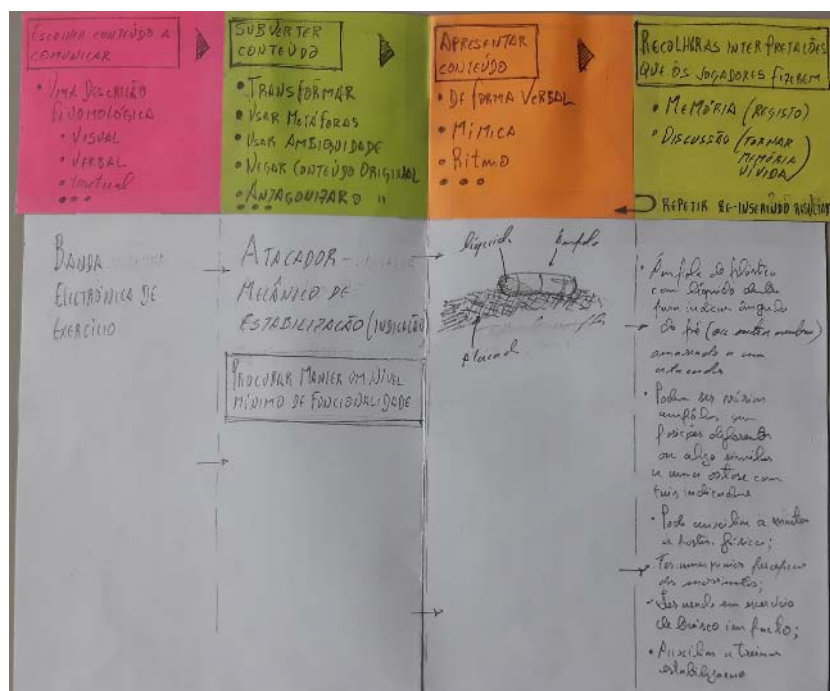 ESCOLHER CONTEÚDO A
COMUNICAR
• UMA DISCRIÇÃO
• VISUAL
• VERBAL
• textual
• • •
SUBVERTER
CONTEÚDO
• TRANSFORMAR
• USAR METÁFORAS
• USAR AMBIGUIDADE
• NEGAR CONTEÚDO ORIGINAL
• ANTAGONIZAR O "
• • •
APRESENTAR
CONTEÚDO
• DE FORMA VERBAL
• MÍMICA
• Ritmo
• • •
RECOLHER AS INTERPRETAÇÕES
QUE OS JOGADORES FIZEREM
• MEMÓRIA (REGISTO)
• DISCUSSÃO (TORNAR
MEMÓRIA
VIVIDA)
REPETIR RE-INSERINDO RESULTADO
BANDA
ELECTRÓNICA DE
EXERCÍCIO
ATACADOR
MECÂNICO DE
ESTABILIZAÇÃO (INDICAÇÃO)
PROCURAR MANTER UM NÍVEL
MÍNIMO DE FUNCIONALIDADE
líquido
Ampola
Atacador
• Ampola de plástico
com líquido dentro
para indicar ângulo
do pé (ou outro membro)
amarrado a um
atacador
• Podem ser várias
ampolas em
posições diferentes
ou algo similar
a uma ortose com
tais indicadores
• Pode auxiliar a manter
a postura física;
Ter uma maior percepção
dos movimentos;
• Ser usado em exercício
• Auxiliar a treinar